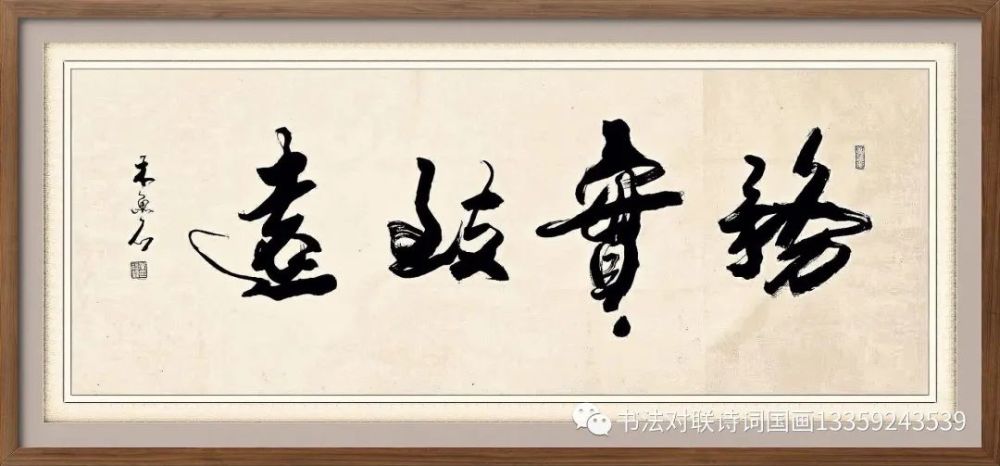 務實致遠
木魚石
书法对联诗词国画13359243539